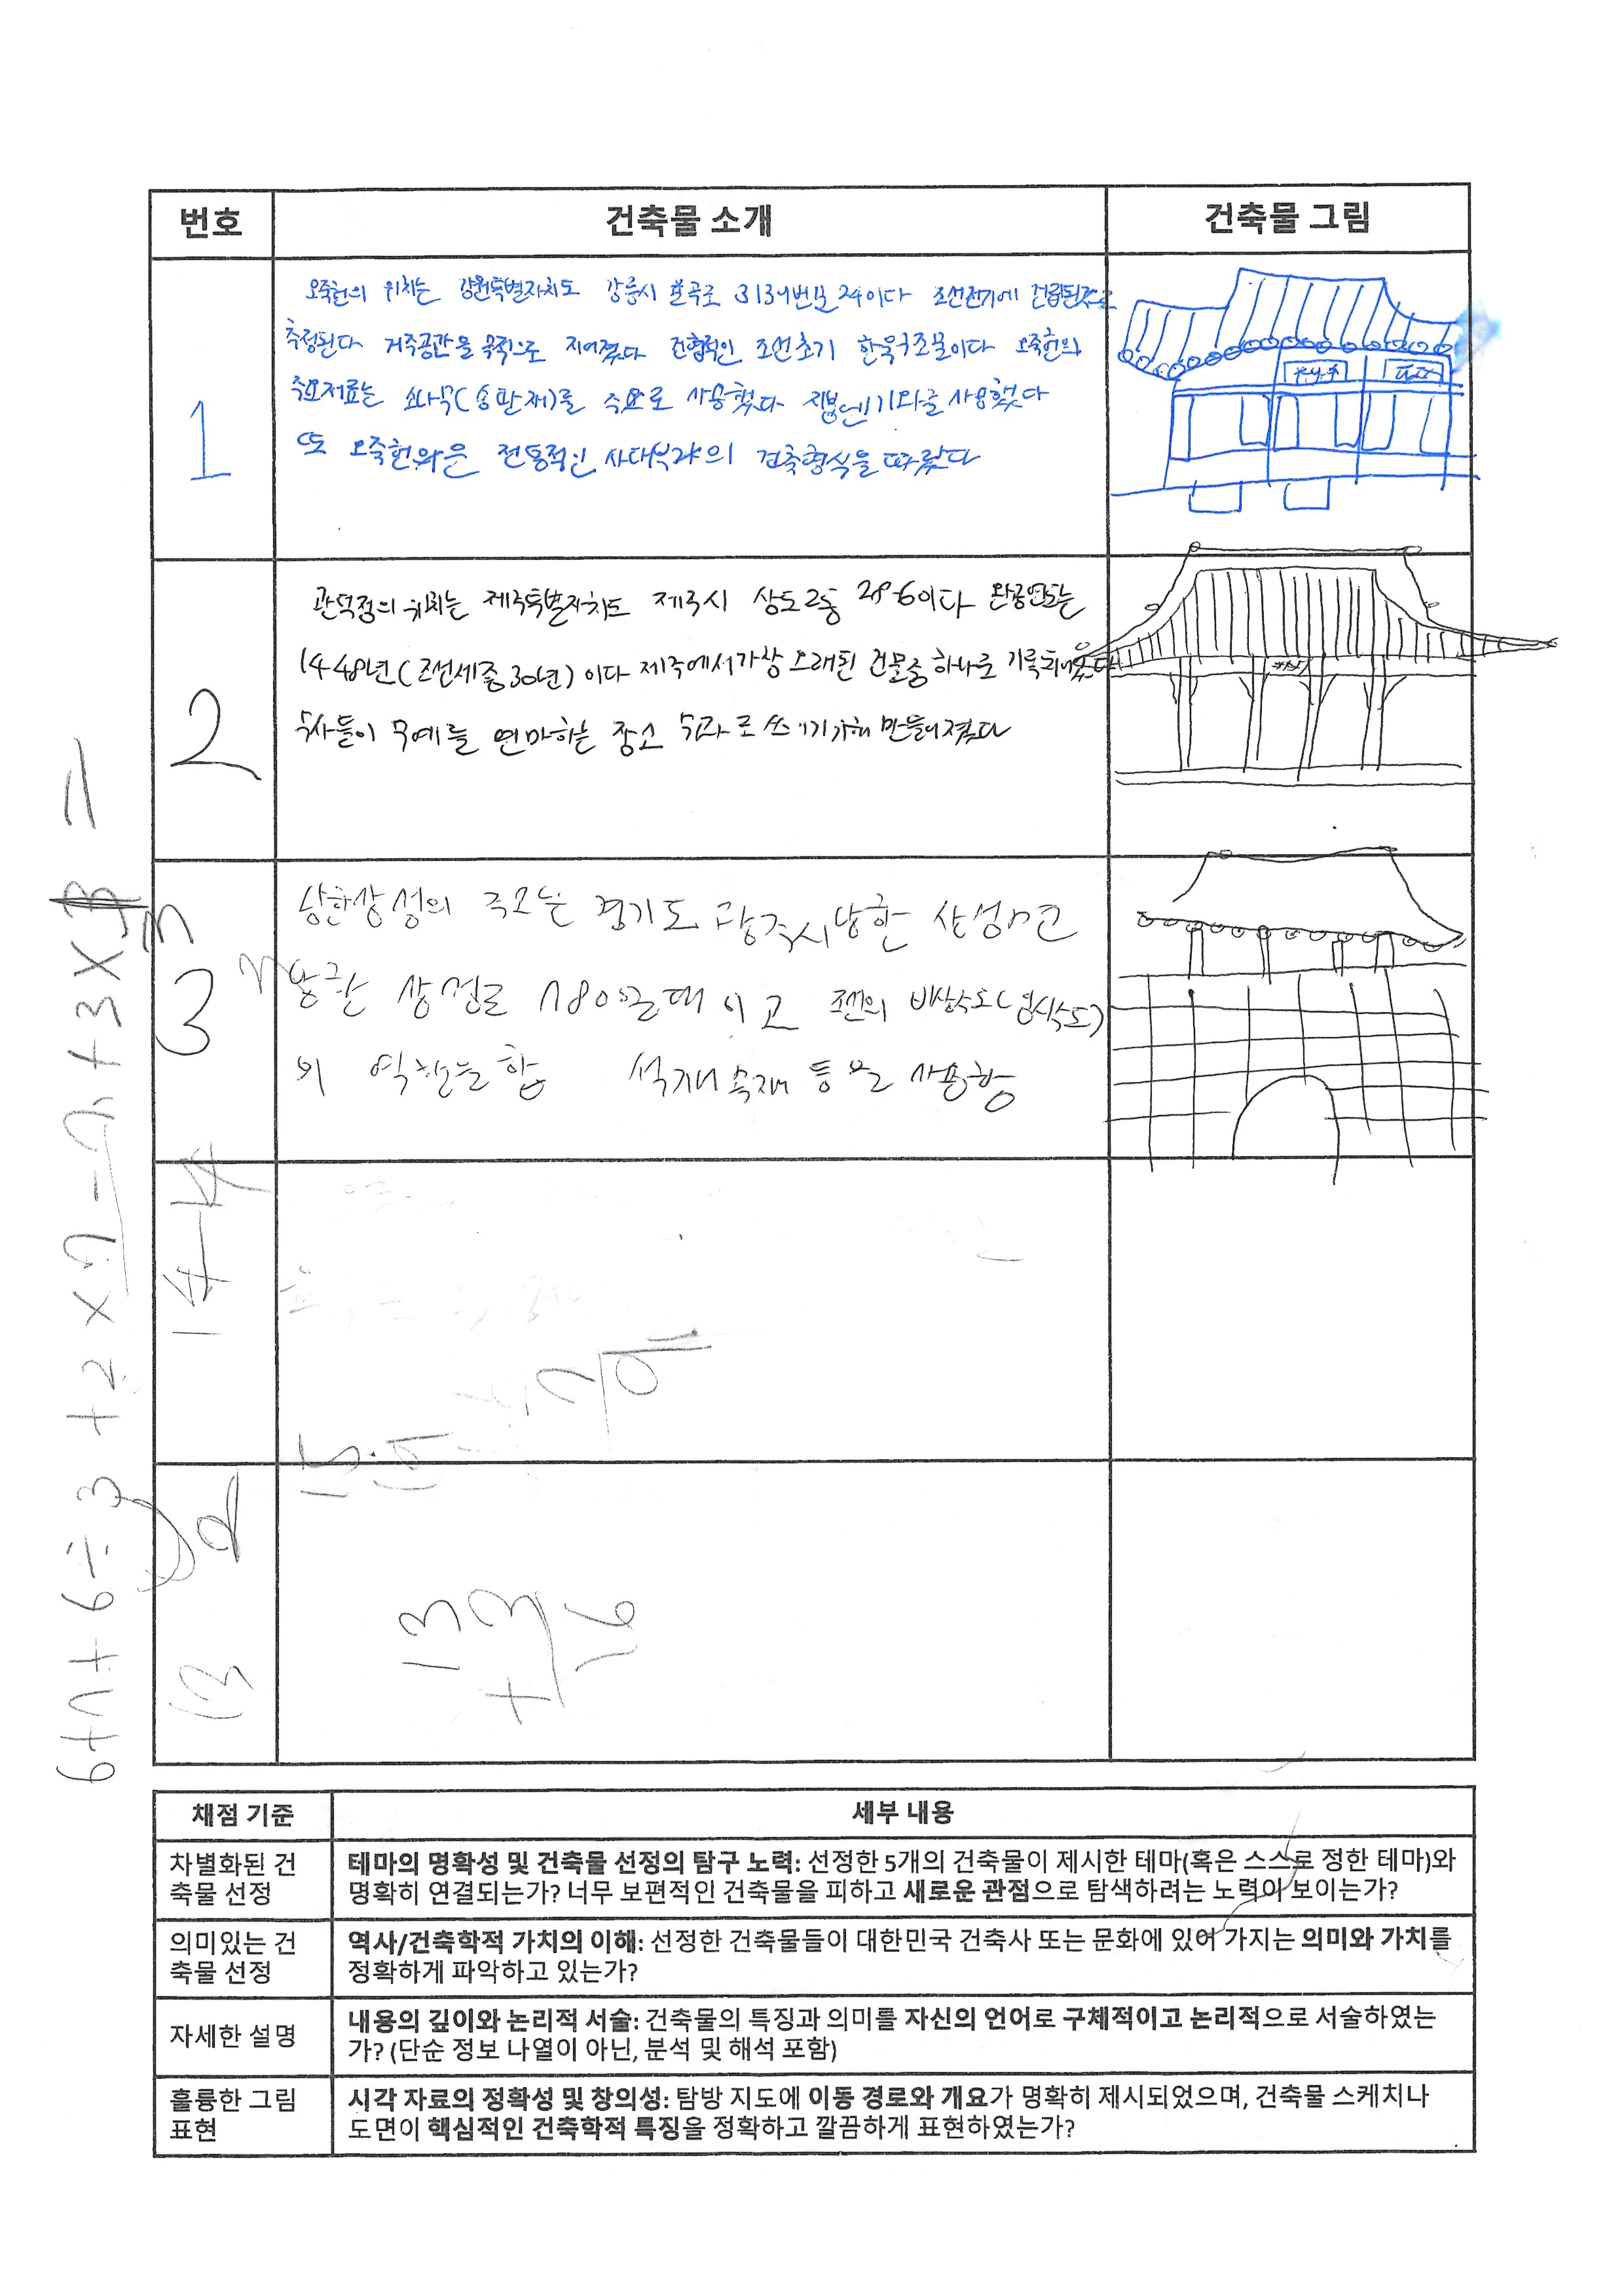 번호 건축물 소개 건축물 그림
1
오죽헌의 위치는 강원특별자치도 강릉시 율곡로 3139번길 24이다 조선전기에 건립된것으로
측정된다 거주공간을 목적으로 지어졌다 전형적인 조선초기 한옥구조물이다 오죽헌의
주요재료는 소나무(송판재)를 주요로 사용했다 지붕엔 기와를 사용했다
또 오죽헌은 전통적인 사대부가의 건축형식을 따랐다
2
관덕정의 위치는 제주특별자치도 제주시 삼도2동 이다 완공연도는
1448년(조선세종30년)이다 제주에서가장 오래된 건물중 하나로 기록되어있다
무예를 연마하는 장소 쓰기위해 만들어졌다
3
경기도 광주시남한 산성면
780 이고 조선의 비상수도(임시수도)
의 역할을함 석재 목재 등을 사용함
6+n+6÷3+2×
14-14
13
13
+3
16
채점 기준 세부 내용
차별화된 건
축물 선정
테마의 명확성 및 건축물 선정의 탐구 노력: 선정한 5개의 건축물이 제시한 테마(혹은 스스로 정한 테마)와
명확히 연결되는가? 너무 보편적인 건축물을 피하고 새로운 관점으로 탐색하려는 노력이 보이는가?
의미있는 건
축물 선정
역사/건축학적 가치의 이해: 선정한 건축물들이 대한민국 건축사 또는 문화에 있어 가지는 의미와 가치를
정확하게 파악하고 있는가?
자세한 설명
내용의 깊이와 논리적 서술: 건축물의 특징과 의미를 자신의 언어로 구체적이고 논리적으로 서술하였는
가? (단순 정보 나열이 아닌, 분석 및 해석 포함)
훌륭한 그림
표현
시각 자료의 정확성 및 창의성: 탐방 지도에 이동 경로와 개요가 명확히 제시되었으며, 건축물 스케치나
도면이 핵심적인 건축학적 특징을 정확하고 깔끔하게 표현하였는가?